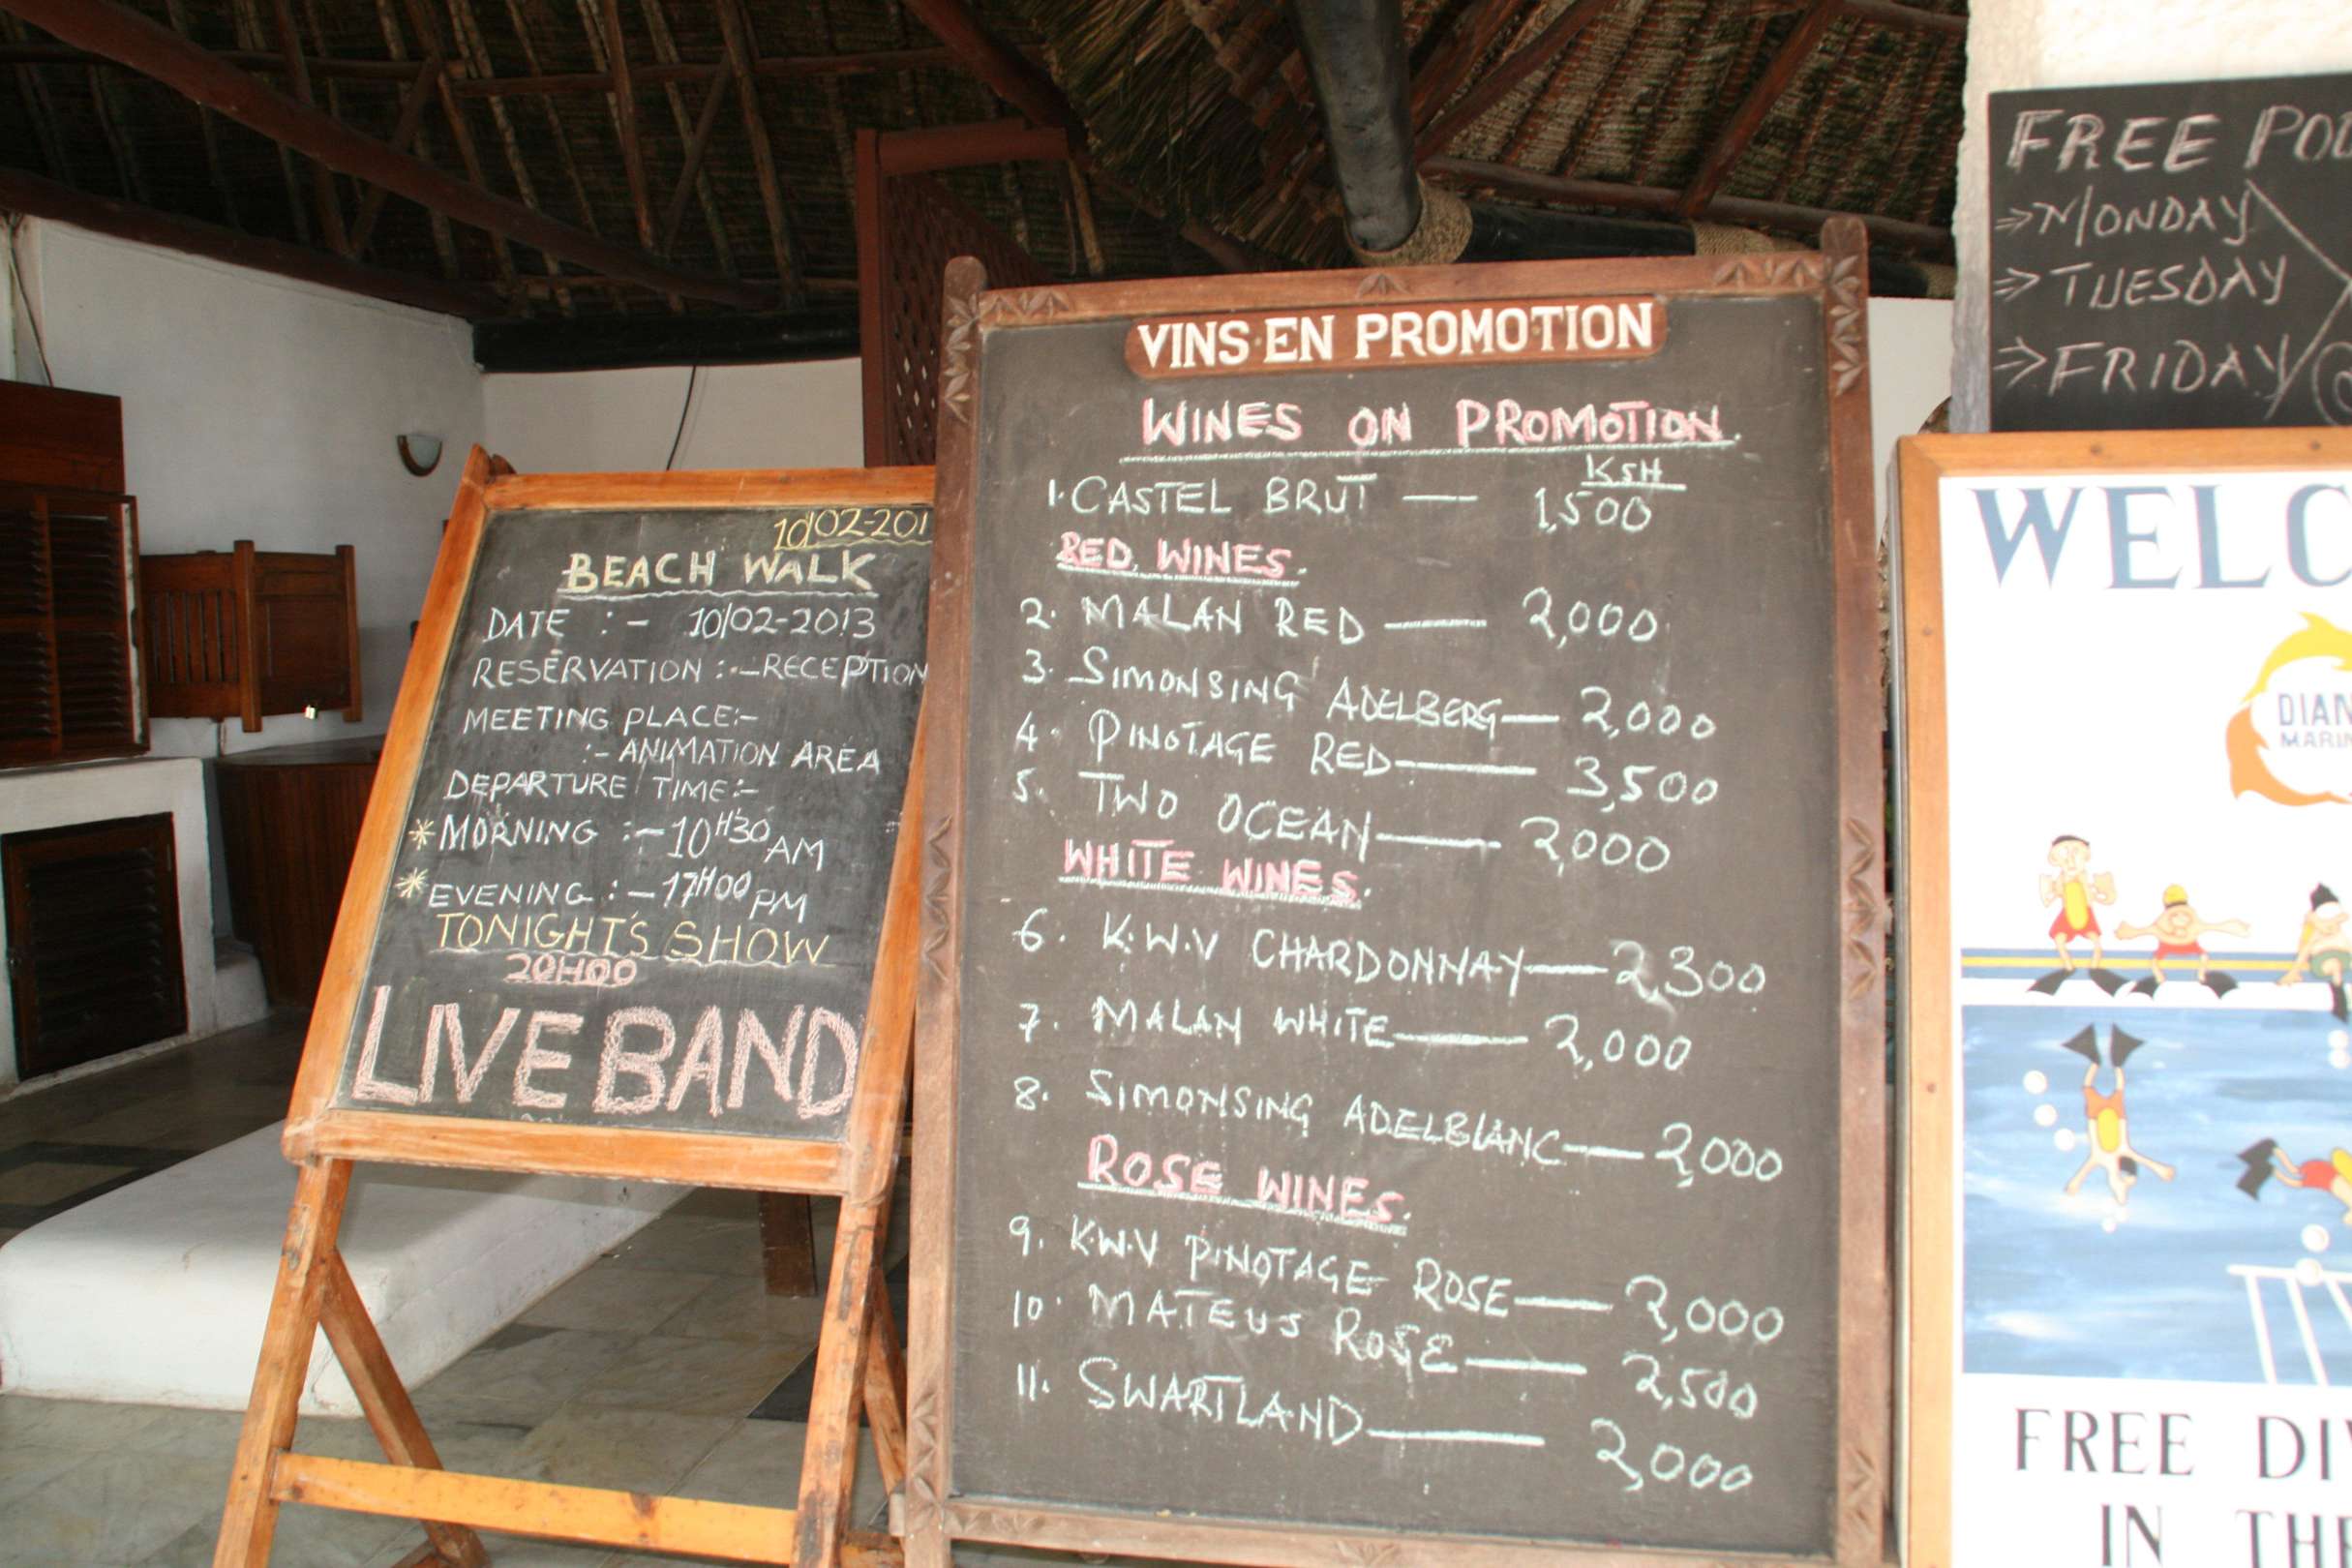 10/02-201
BEACH WALK
DATE :- 10/02-2013
RESERVATION :-RECEPTION
MEETING PLACE:-
:- ANIMATION AREA
DEPARTURE TIME:-
*MORNING :- 10H30 AM
*EVENING :- 17H00 PM
TONIGHT'S SHOW
20H00
LIVE BAND
VINS EN PROMOTION
WINES ON PROMOTION.
KSH
1. CASTEL BRUT — 1,500
RED WINES.
2. MALAN RED — 2,000
3. SIMONSING ADELBERG — 2,000
4. PINOTAGE RED — 3,500
5. TWO OCEAN — 2,000
WHITE WINES.
6. K.W.V CHARDONNAY — 2,300
7. MALAN WHITE — 2,000
8. SIMONSING ADELBLANC — 2,000
ROSE WINES.
9. K.W.V PINOTAGE ROSE — 2,000
10. MATEUS ROSE — 2,500
11. SWARTLAND — 2,000
FREE
⇒MONDAY
⇒TUESDAY
⇒FRIDAY
WELC
DIAN
MARIN
FREE DI
IN THE